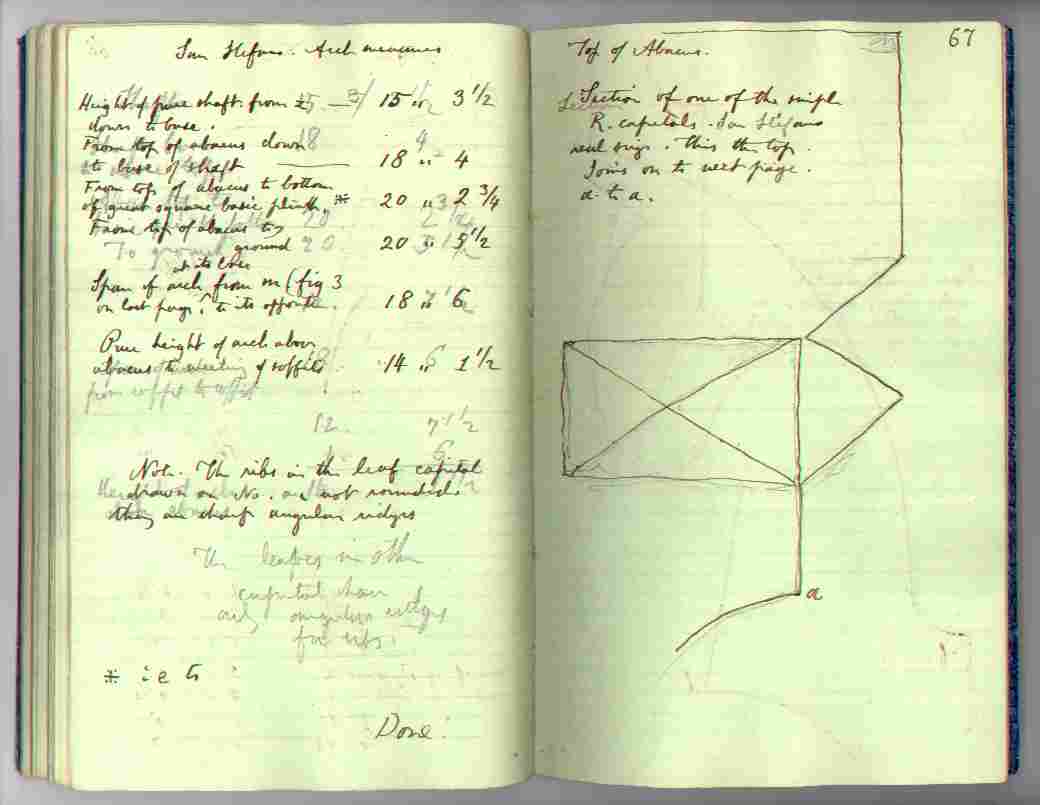 San Stefano. Arch measures
Height of pure shaft from
down to base. 15 " 3 1/2
From top of abacus down
to base of shaft 18 " 4
From top of abacus to bottom
of great square basic plinth. * 20 " 2 3/4
From top of abacus to
To ground ground 20 " 5 1/2
at its base
Span of arch from m (fig 3
on last page ^ to its opposite. 18 " 6
Pure height of arch above
abacus to meeting of soffits 14 " 1 1/2
from soffit to soffit
12. 7 1/2
6
Note. The ribs in the leaf capital
drawn on No. are not rounded.
they are sharp angular ridges
The leaves in other
capital have
only angular edges
for ribs.
* i e to
Done.
67
Top of Abacus.
Section of one of the simple
R. capitals. San Stefano
real size. This the top.
Joins on to next page.
a to a.
a